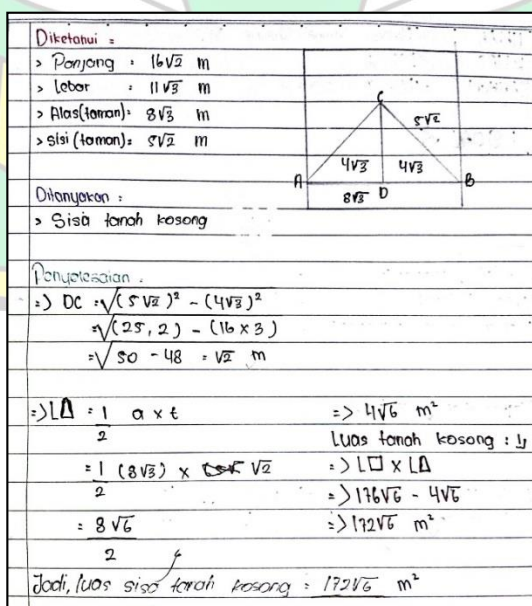 Diketahui =
> Panjang : 16√2 m
> Lebar : 11√3 m
> Alas (taman) : 8√3 m
> sisi (taman) : 5√2 m
C
5√2
4√3 4√3
A B
8√3 D
Ditanyakan :
> Sisa tanah kosong
Penyelesaian :
=) DC = √(5√2)² - (4√3)²
= √(25,2) - (16 x 3)
= √50 - 48 = √2 m
=> L∆ = 1/2 a x t
= 1/2 (8√3) x √2
= 8√6/2
=> 4√6 m²
Luas tanah kosong :
=> L□ x L∆
=> 176√6 - 4√6
=> 172√6 m²
Jadi, luas sisa tanah kosong = 172√6 m²